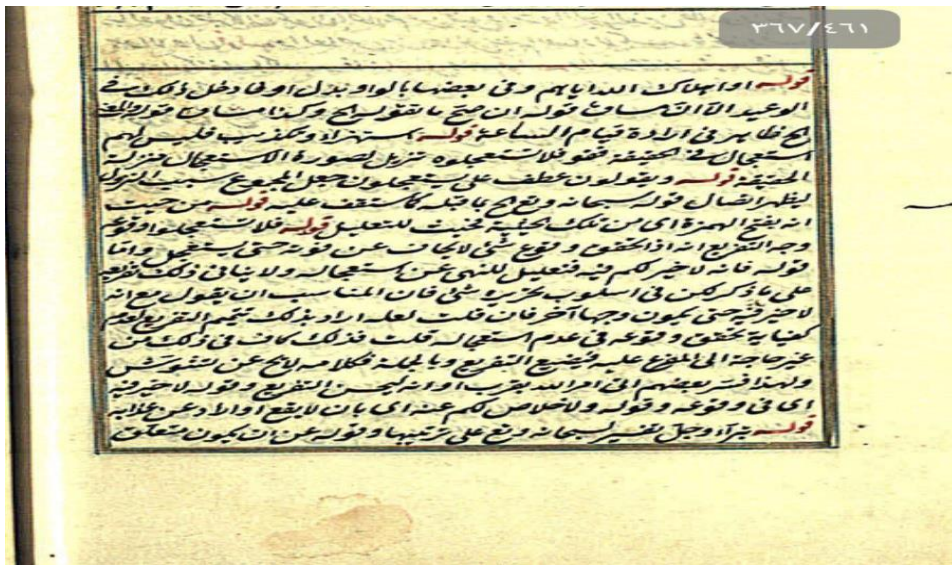 ٣٦٧/٤٦١
قوله او اهلاك الله اياهم وفى بعضها بالواو بدل او فى دخل ذلك فى
الوعيد الا ان قوله ان صح ما تقوله الخ وكذا
الخ ظاهر فى ارادة قيام الساعة قوله استهزاء وتكذيب فليس لهم
استعجال فى الحقيقة فقوله فلا تستعجلوه تنزيل لصورة الاستعجال منزلة
الحقيقة قوله ويقولون عطف على يستعجلون جعل المجموع سبب النزول
ليظهر اتصال قوله سبحانه وتعالى بما قبله كما ستقف عليه قوله من حيث
انه بفتح الهمزة اى من تلك الحيثية فحيث للتعليل قوله فلا تستعجلوا وقوعه
وجه التفريع انه اذا تحقق وقوع شئ لا يخاف عن فوته حتى يستعجل واما
قوله فانه لا خير لكم فيه فتعليل للنهى عن استعجاله ولا ينافى ذلك تفريعه
على ما ذكر لكن فى اسلوب تحريره شئ فان المناسب ان يقول مع انه
لا خير فيه حتى يكون وجها آخر فان قلت لعله اراد بذلك تتميم التفريع لعدم
كفاية تحقق وقوعه فى عدم استعجاله قلت فذلك كاف فى ذلك من
غير حاجة الى المفرع عليه فيضيع التفريع وبالجملة فكلامه لا يخ عن تشويش
ولهذا بعضهم اتى امر الله بقرب او انه ليحسن التفريع وقوله لا خير فيه
اى فى وقوعه وقوله ولا خلاص لكم عنه اى بان لا يقع او اراد عن عذابه
قوله تبرأ وجل تفسير لسبحانه وتع على ترتيبها وقوله عن ان يكون متعلق